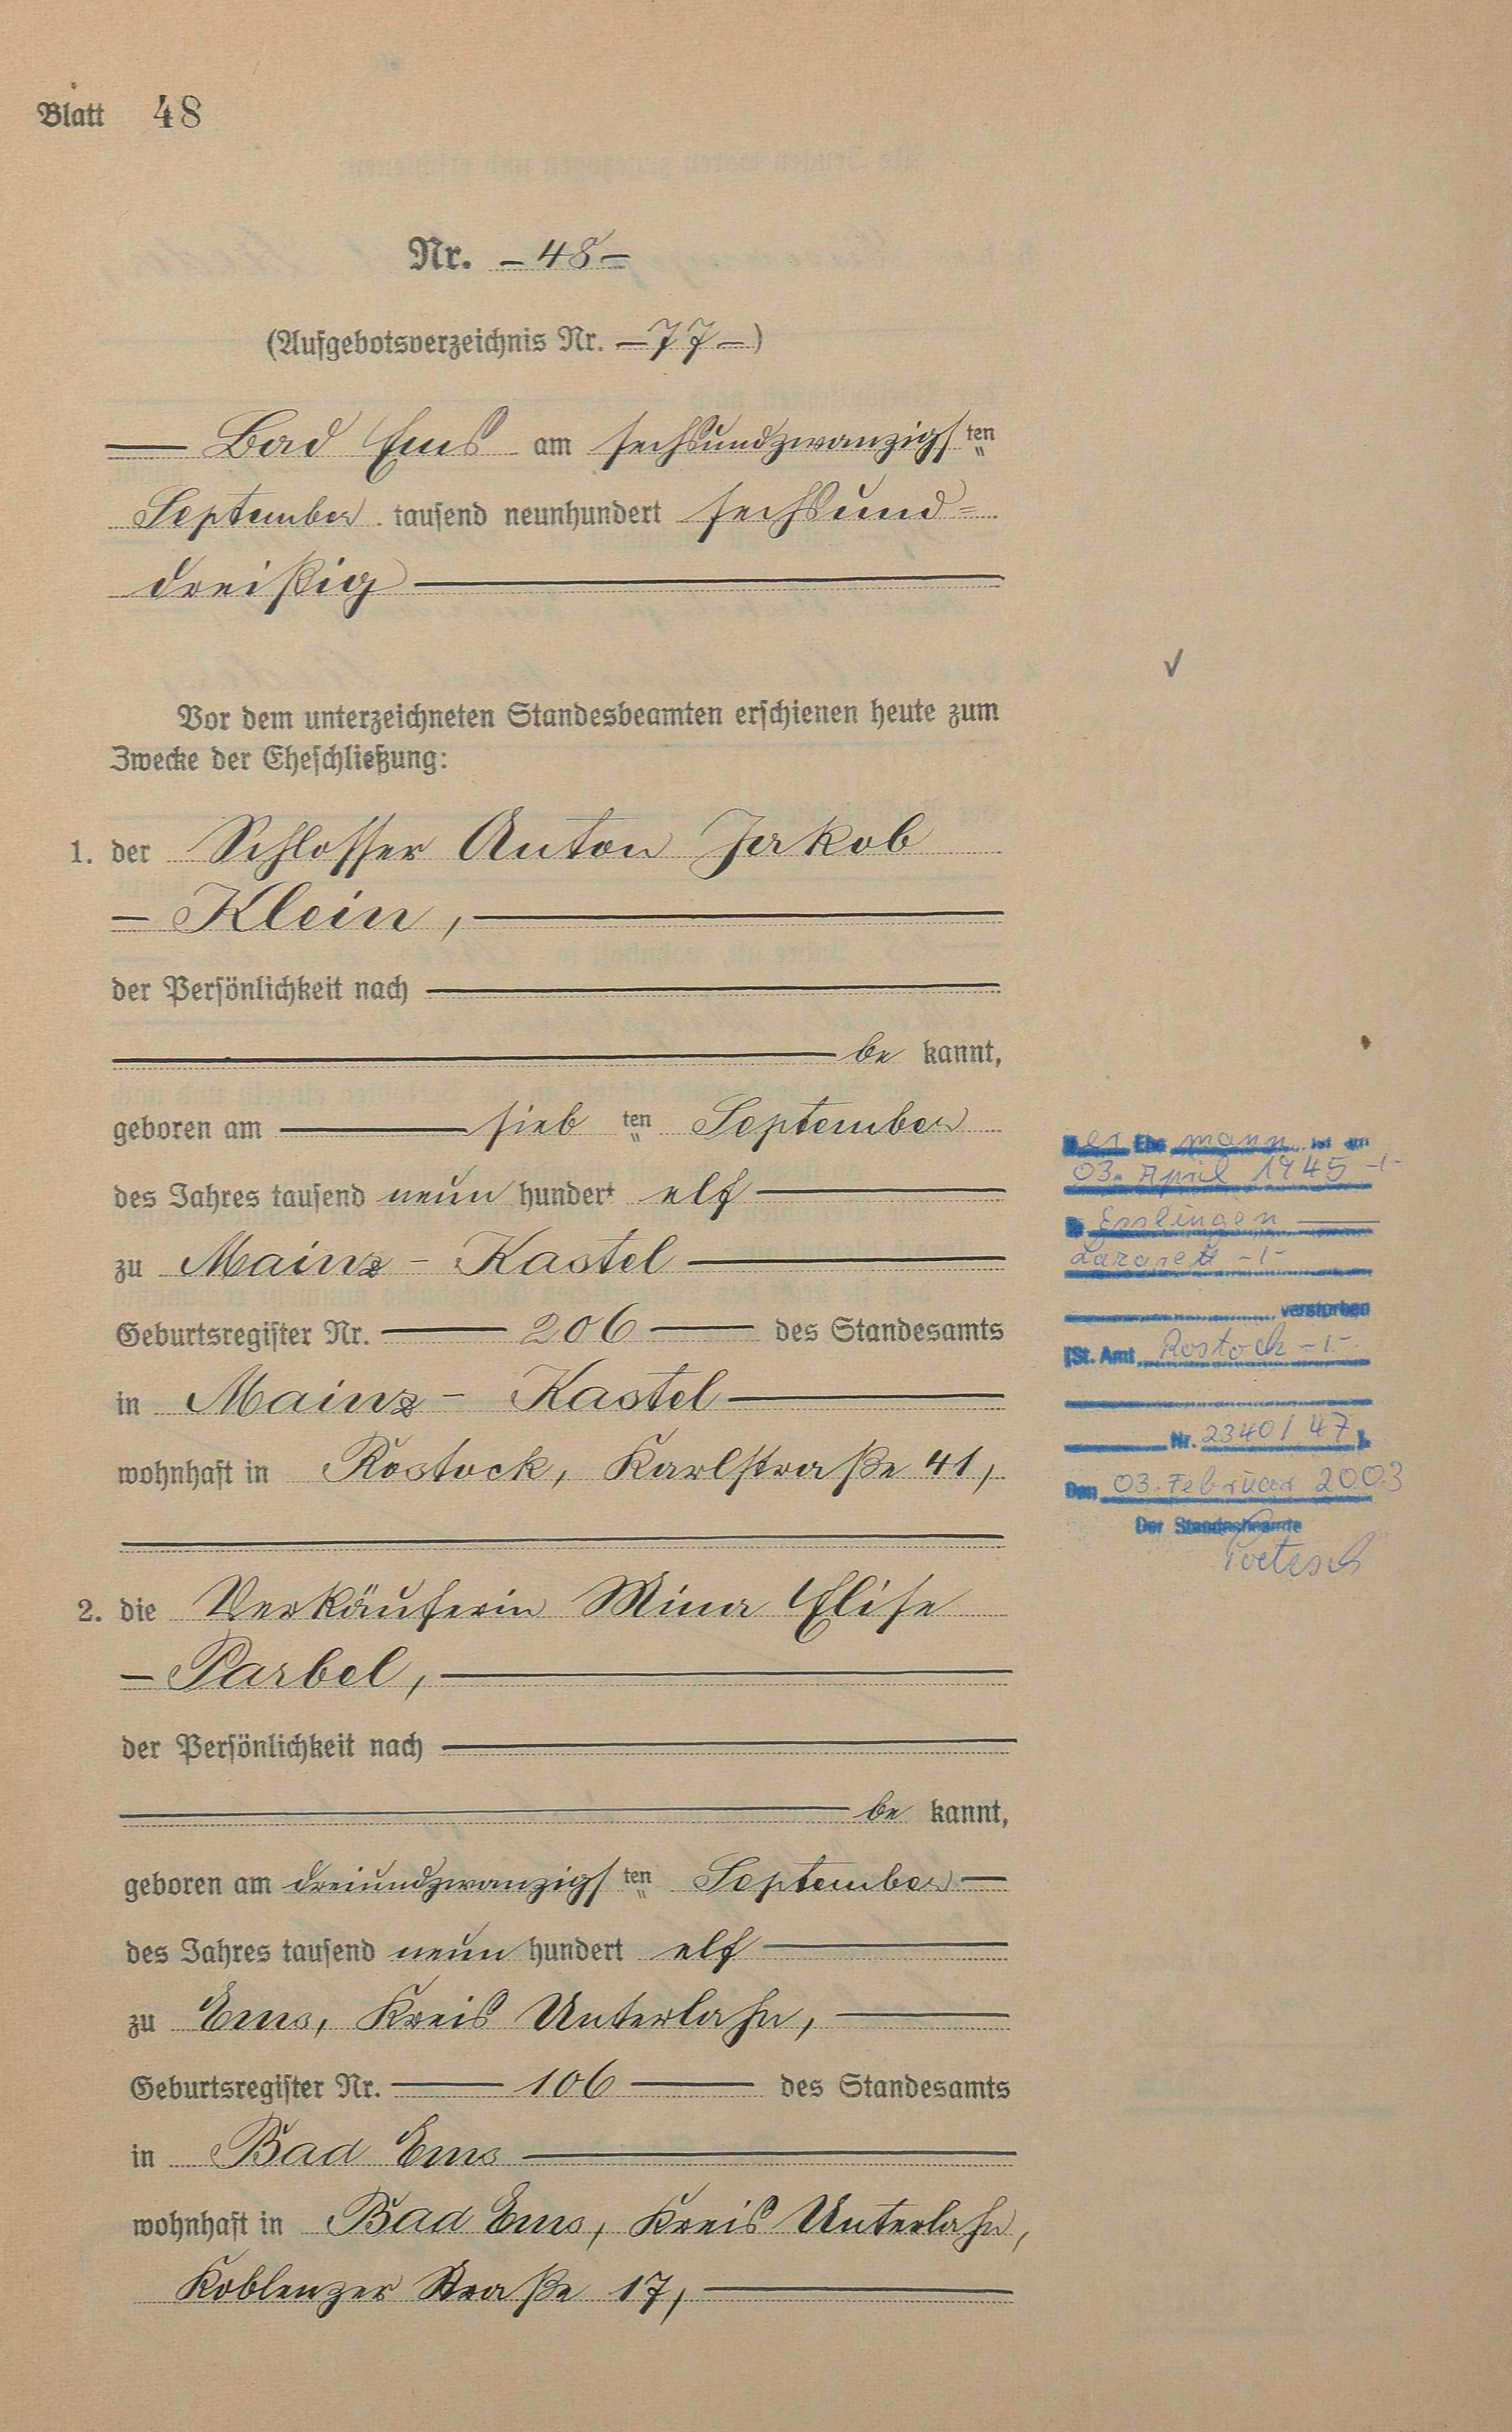 Blatt 48
Nr. – 48 –
(Aufgebotsverzeichnis Nr. – 77 –)
Bad Ems am sechsundzwanzigsten
September tausend neunhundert sechsund=
dreißig
Vor dem unterzeichneten Standesbeamten erschienen heute zum
Zwecke der Eheschließung:
1. der Schlosser Anton Jakob
– Klein,
der Persönlichkeit nach
be kannt,
geboren am sieb ten September
des Jahres tausend neun hundert elf
zu Mainz - Kastel
Geburtsregister Nr. 206 des Standesamts
in Mainz - Kastel
wohnhaft in Rostock, Karlstraße 41,
2. die Verkäuferin Mina Elise
– Parbel,
der Persönlichkeit nach
be kannt,
geboren am dreiundzwanzigsten September
des Jahres tausend neun hundert elf
zu Ems, Kreis Unterlahn,
Geburtsregister Nr. 106 des Standesamts
in Bad Ems
wohnhaft in Bad Ems, Kreis Unterlahn,
Koblenzer Straße 17,
Der Ehe mann ist am
03. April 1945 -/-
in Esslingen
Lazarett -/-
verstorben
(St. Amt Rostock -/-
Nr. 2340/47)
Den 03. Februar 2003
Der Standesbeamte